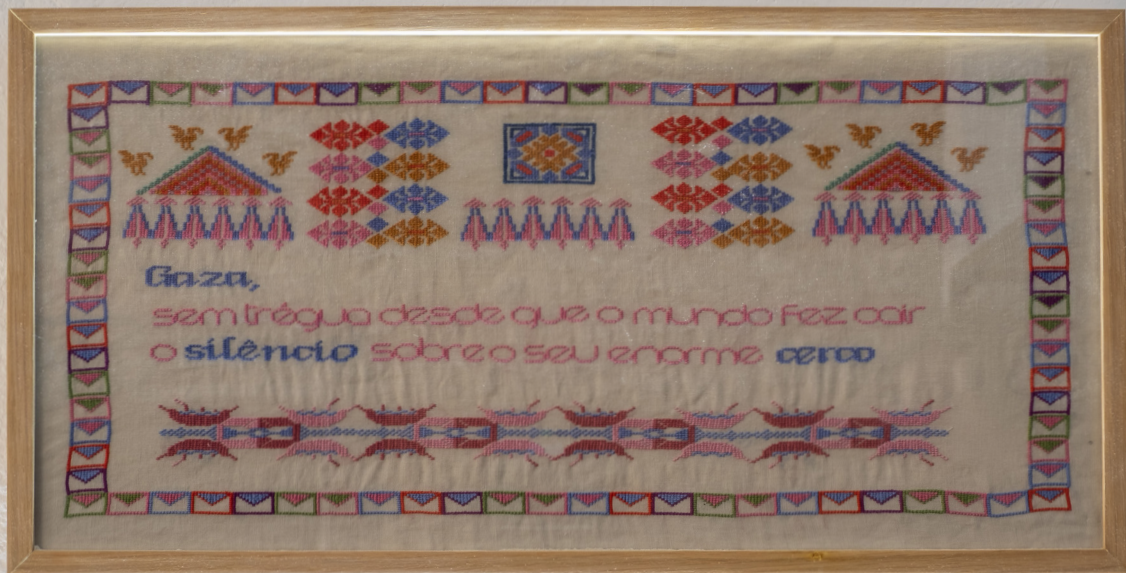 Gaza,
sem trégua desde que o mundo fez cair
o silêncio sobre o seu enorme cerco